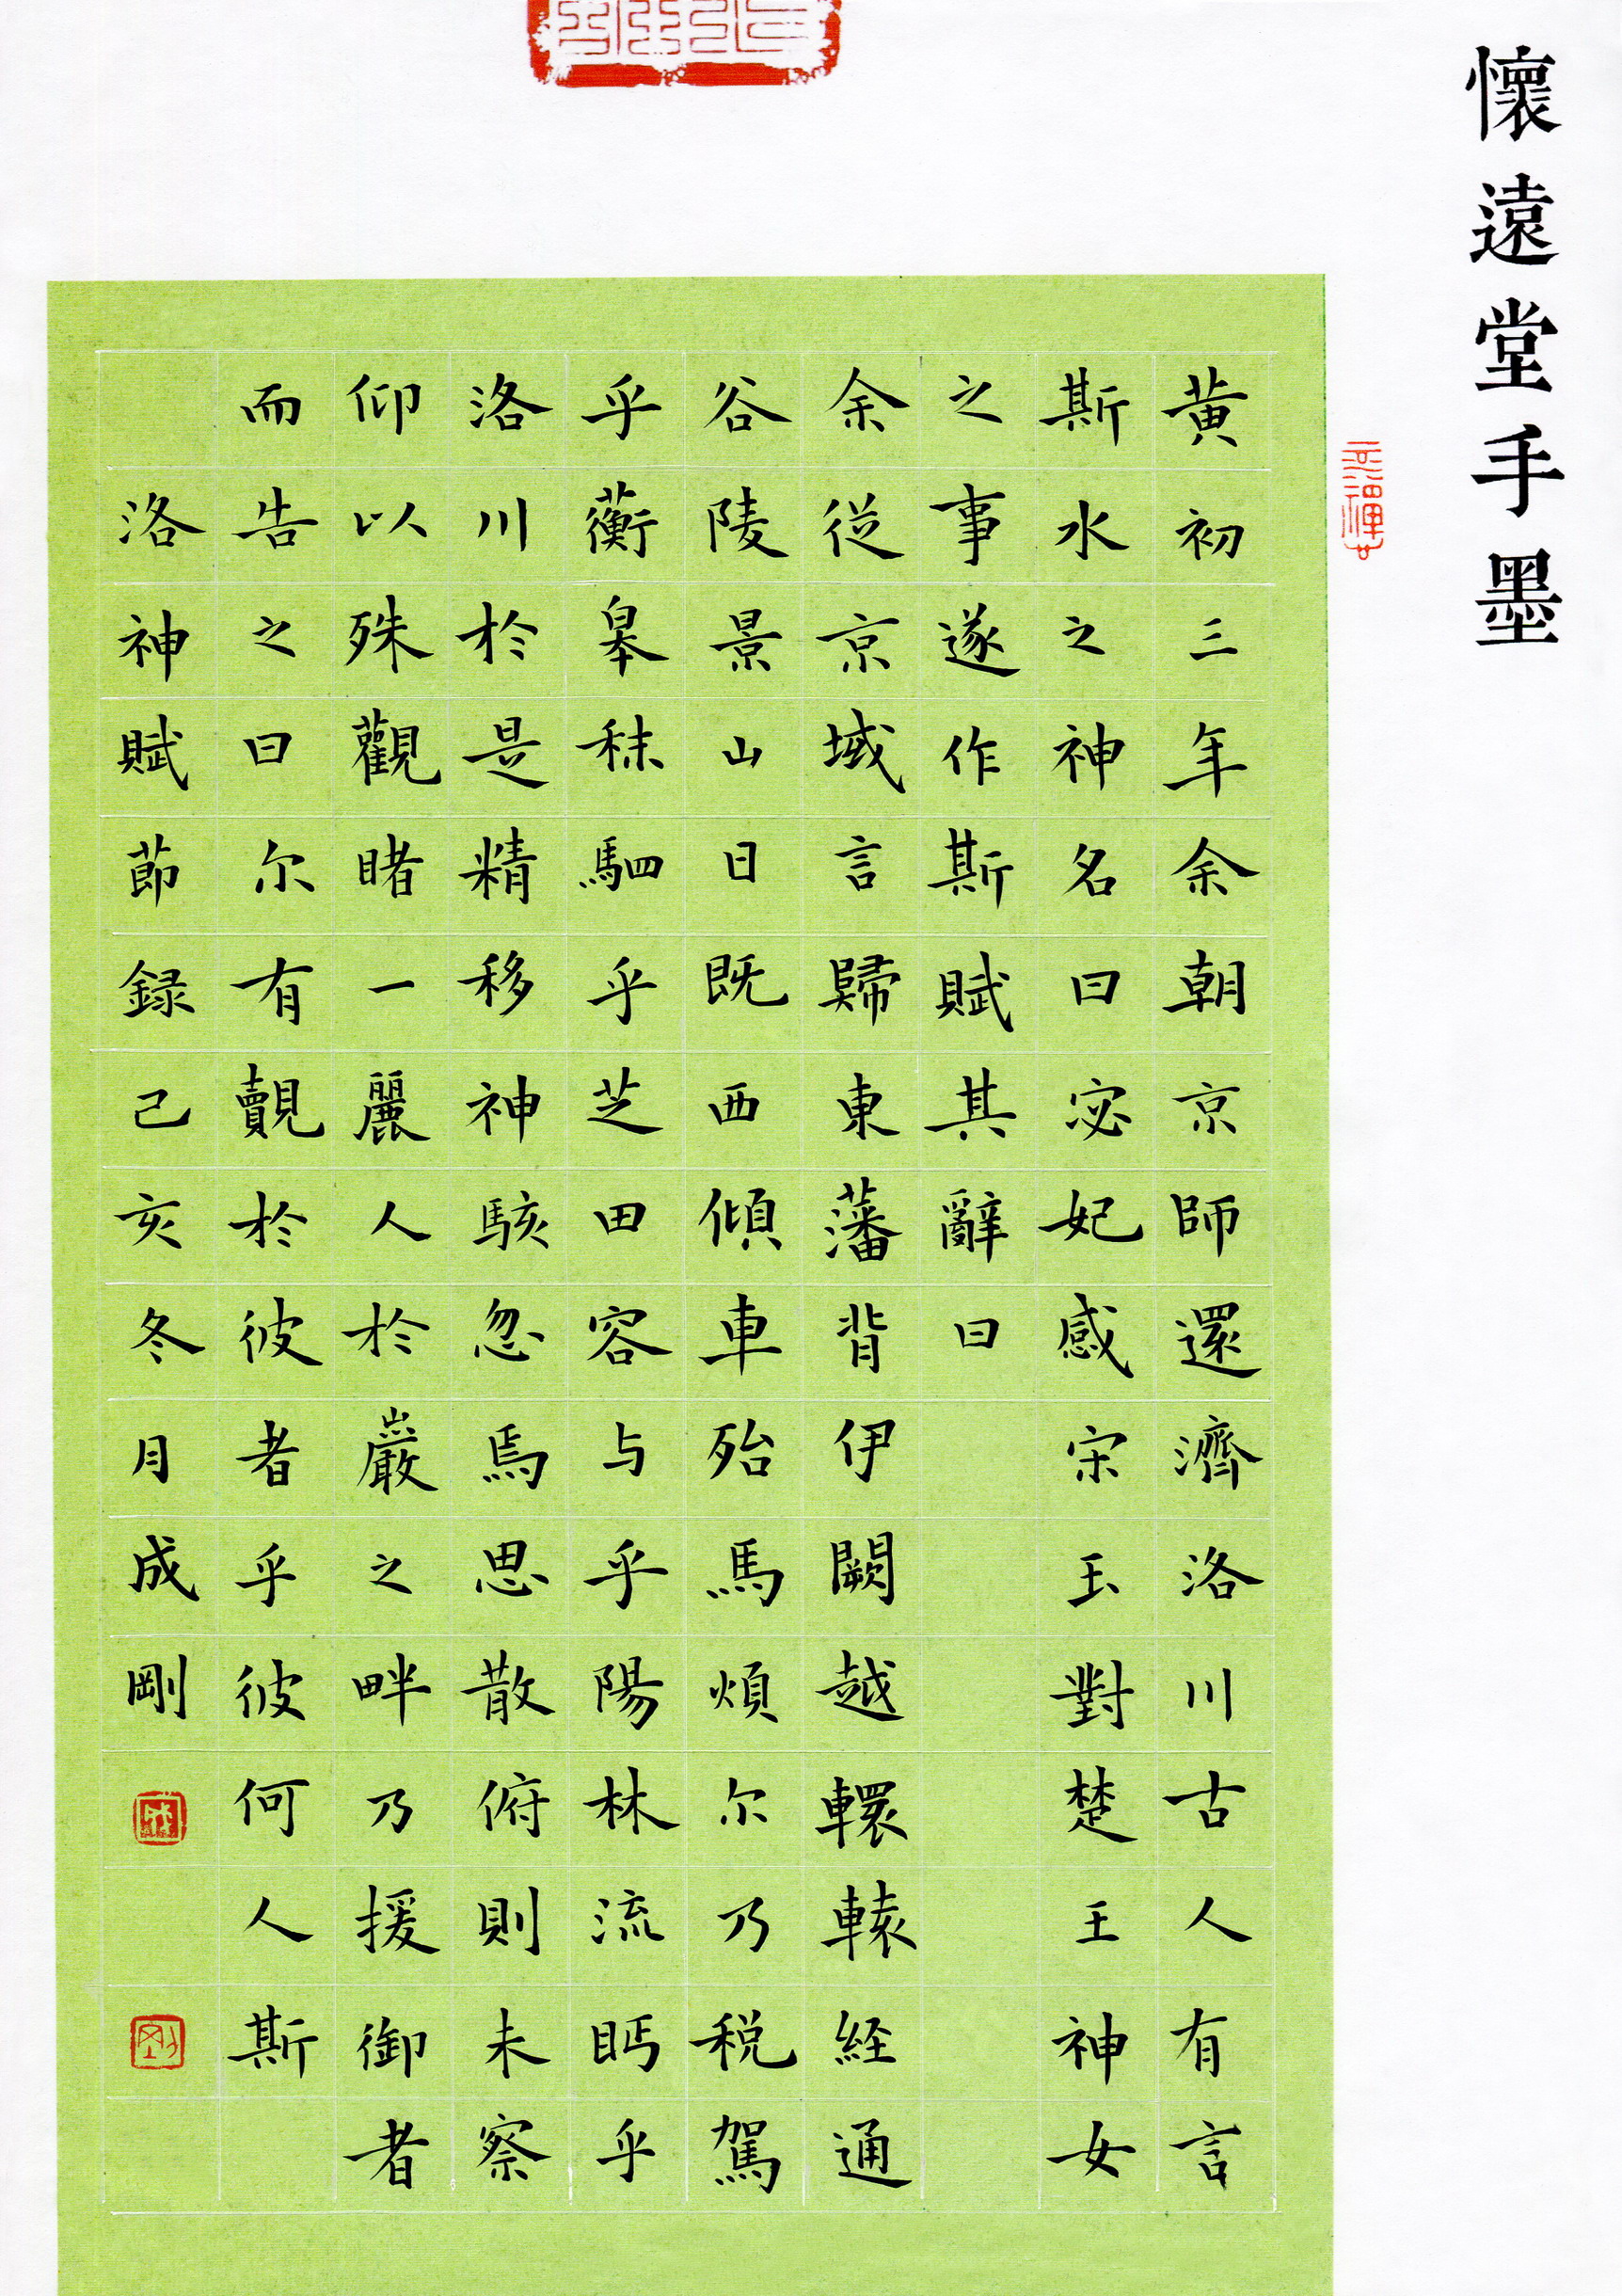 懷遠堂手墨
黃初三年余朝京師還濟洛川古人有言
斯水之神名曰宓妃感宋玉對楚王神女
之事遂作斯賦其辭曰
余從京域言歸東藩背伊闕越轘轅經通
谷陵景山日既西傾車殆馬煩尔乃稅駕
乎蘅皋秣駟乎芝田容与乎陽林流眄乎
洛川於是精移神駭忽焉思散俯則未察
仰以殊觀睹一麗人於巖之畔乃援御者
而告之曰尔有覿於彼者乎彼何人斯
洛神賦節録己亥冬月成剛